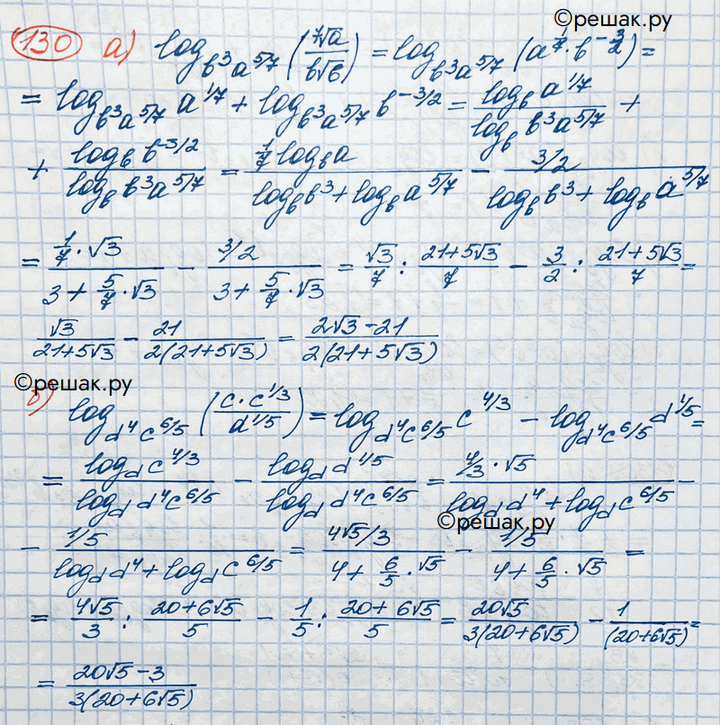 ©решак.ру
130 а) log_{b³a^{5/7}} (⁷√a / b√b) = log_{b³a^{5/7}} (a^{1/7} · b^{-3/2}) =
= log_{b³a^{5/7}} a^{1/7} + log_{b³a^{5/7}} b^{-3/2} = log_b a^{1/7} / log_b b³a^{5/7} +
+ log_b b^{-3/2} / log_b b³a^{5/7} = 1/7 log_b a / (log_b b³ + log_b a^{5/7}) - 3/2 / (log_b b³ + log_b a^{3/7})
= (1/7 · √3) / (3 + 5/7 · √3) - 3/2 / (3 + 5/7 · √3) = √3/7 : (21+5√3)/7 - 3/2 : (21+5√3)/7 =
√3 / (21+5√3) - 21 / 2(21+5√3) = (2√3 - 21) / 2(21+5√3)
©решак.ру
б) log_{d⁴c^{6/5}} (c · c^{1/3} / d^{1/5}) = log_{d⁴c^{6/5}} c^{4/3} - log_{d⁴c^{6/5}} d^{1/5} =
= log_d c^{4/3} / log_d d⁴c^{6/5} - log_d d^{1/5} / log_d d⁴c^{6/5} = (4/3 · √5) / (log_d d⁴ + log_d c^{6/5}) -
©решак.ру
- 1/5 / (log_d d⁴ + log_d c^{6/5}) = (4√5/3) / (4 + 6/5 · √5) - 1/5 / (4 + 6/5 · √5) =
= 4√5/3 : (20+6√5)/5 - 1/5 : (20+6√5)/5 = 20√5 / 3(20+6√5) - 1 / (20+6√5) =
= (20√5 - 3) / 3(20+6√5)